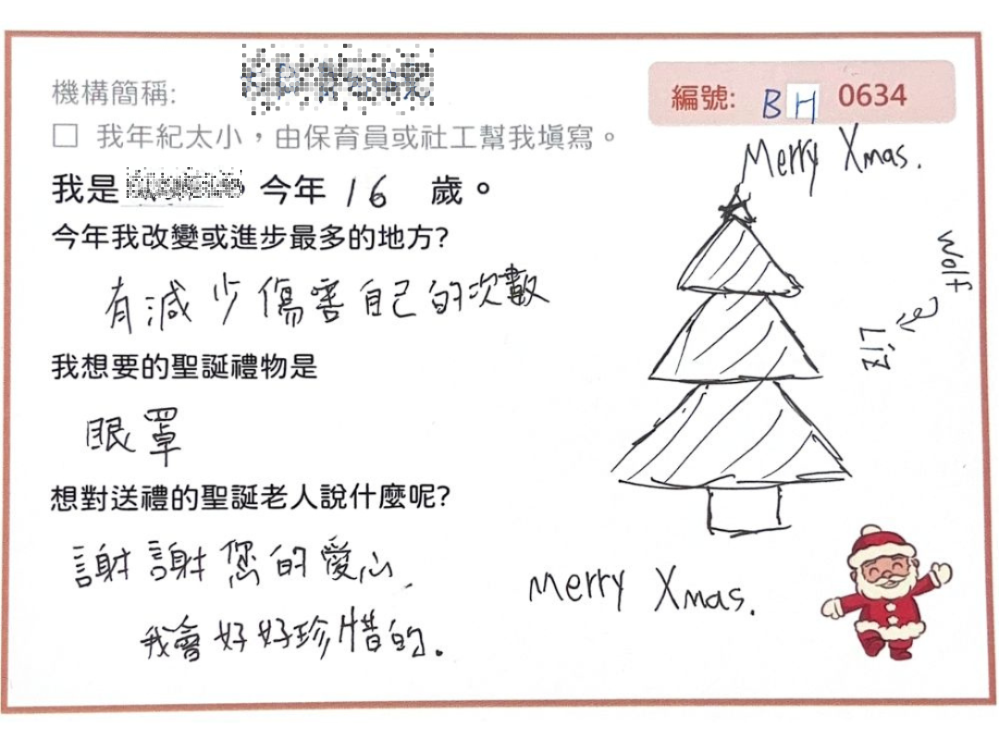 機構簡稱:
編號: BH 0634
□ 我年紀太小，由保育員或社工幫我填寫。
Merry Xmas.
我是 今年 16 歲。
今年我改變或進步最多的地方?
有減少傷害自己的次數
Wolf
Liz
我想要的聖誕禮物是
眼罩
想對送禮的聖誕老人說什麼呢?
謝謝您的愛心,
我會好好珍惜的.
Merry Xmas.